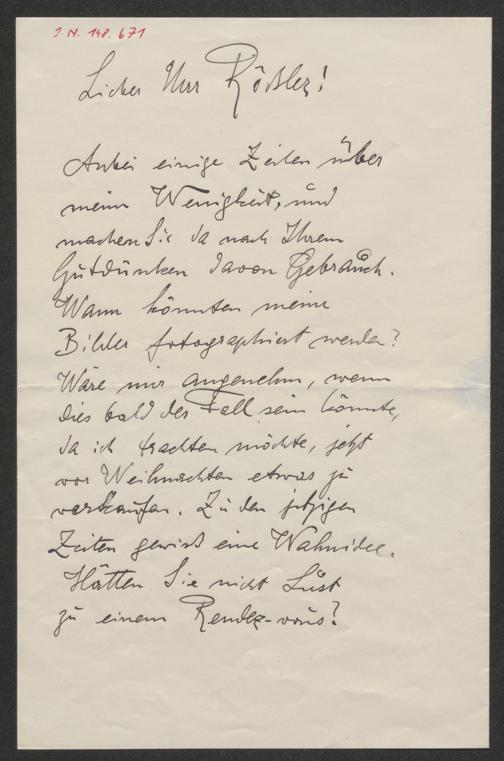 I. N. 148.671
Lieber Herr Rößler!
Anbei einige Zeilen über
meine Wenigkeit, und
machen Sie da nach Ihrem
Gutdünken davon Gebrauch.
Wann könnten meine
Bilder fotographiert werden?
Wäre mir angenehm, wenn
dies bald der Fall sein könnte,
da ich trachten möchte, jetzt
vor Weihnachten etwas zu
verkaufen. Zu den jetzigen
Zeiten gewiß eine Wahnidee.
Hätten Sie nicht Lust
zu einem Rendez-vous?